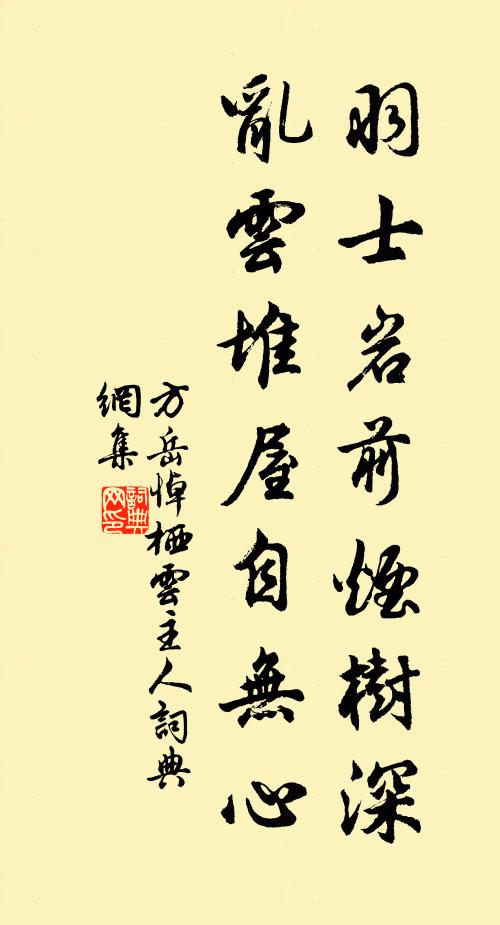 羽士岩前煙樹深
亂雲堆屋自無心
方岳悼栖雲主人詞典
網集
詞典
网印